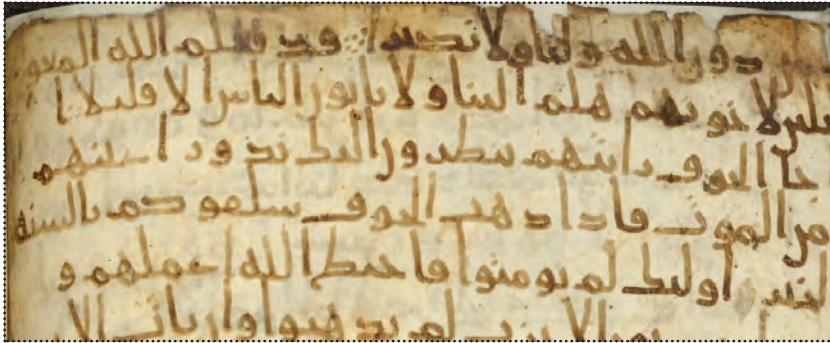 دون الله وليا ولا نصيرا قد يعلم الله المعو
ـلين لاخونهم هلم الينا ولا ياتون الباس الا قليلا ا
جا الخوف رايتهم ينظرون اليك تدور اعينهم
من الموت فاذا ذهب الخوف سلقوكم بالسنه
الخير اوليك لم يومنوا فاحبط الله اعملهم و
ـبون الاحزب لم يذهبوا وان يات الا